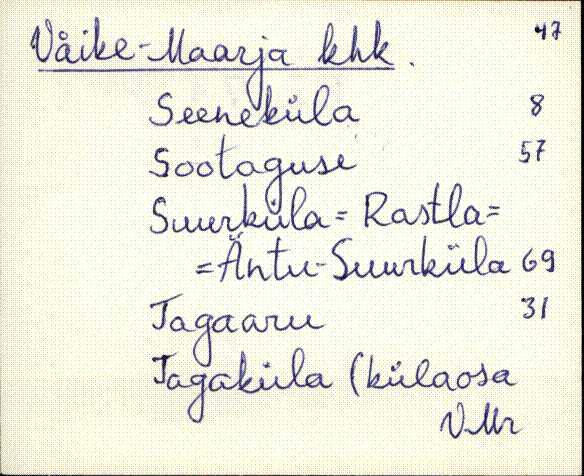 47
Väike-Maarja khk.
Seeneküla 8
Sootaguse 57
Suurküla = Rastla =
= Äntu-Suurküla 69
Tagaaru 31
Tagaküla (külaosa
V.Mr